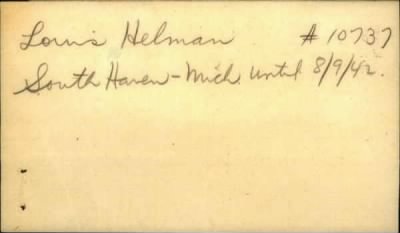 Louis Helman # 10737
South Haven - Mich until 8/9/42.